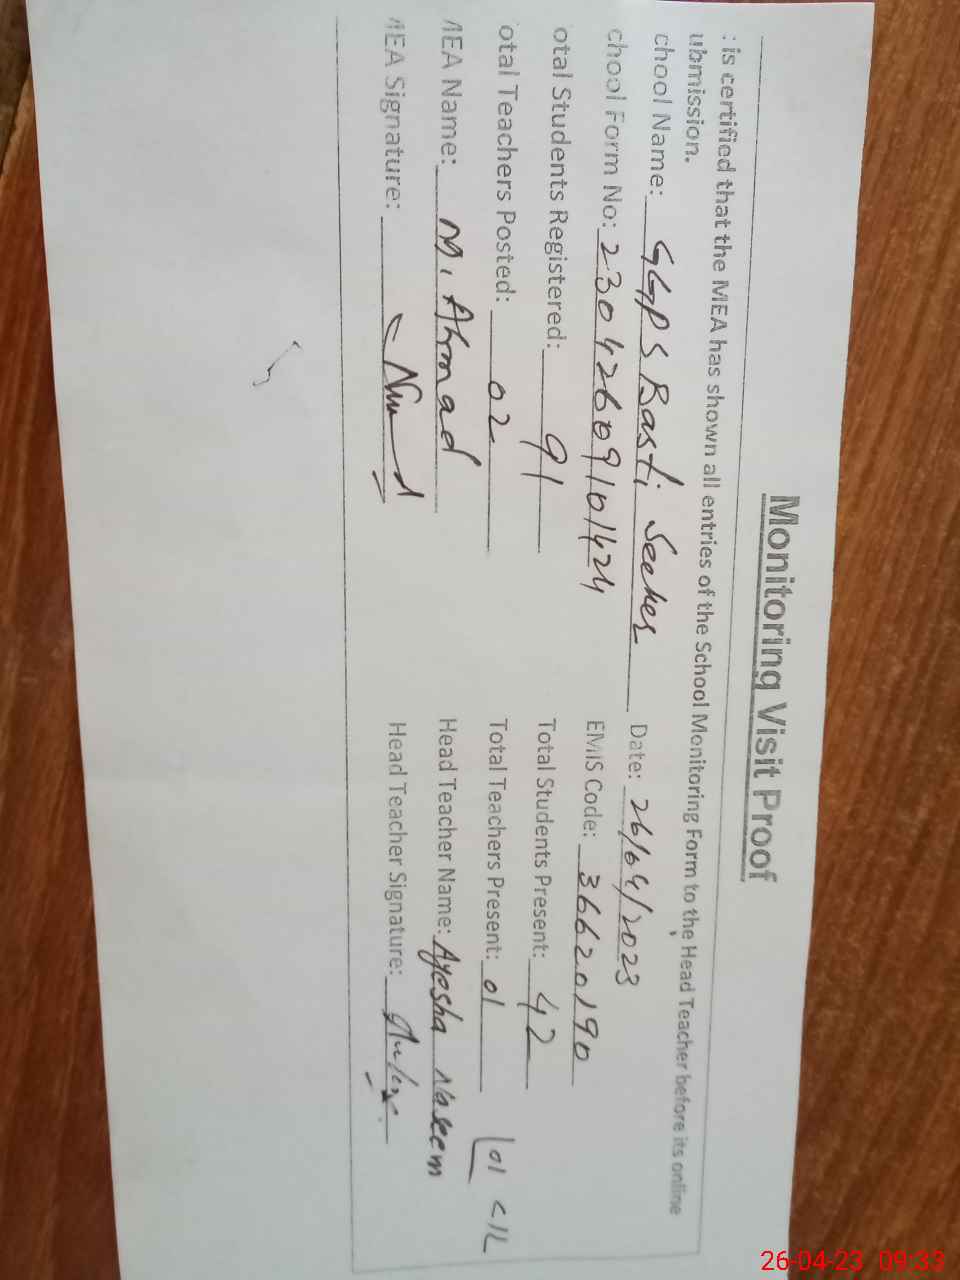 Monitoring Visit Proof
: is certified that the MEA has shown all entries of the School Monitoring Form to the Head Teacher before its online
ubmission.
chool Name: GGPS Basti Seeher Date: 26/04/2023
chool Form No: 23042609101424 EMIS Code: 36620190
otal Students Registered: 91 Total Students Present: 42
otal Teachers Posted: 02 Total Teachers Present: 01
MEA Name: M. Ahmad Head Teacher Name: Ayesha Naseem
MEA Signature: Head Teacher Signature:
26-04-23 09:33